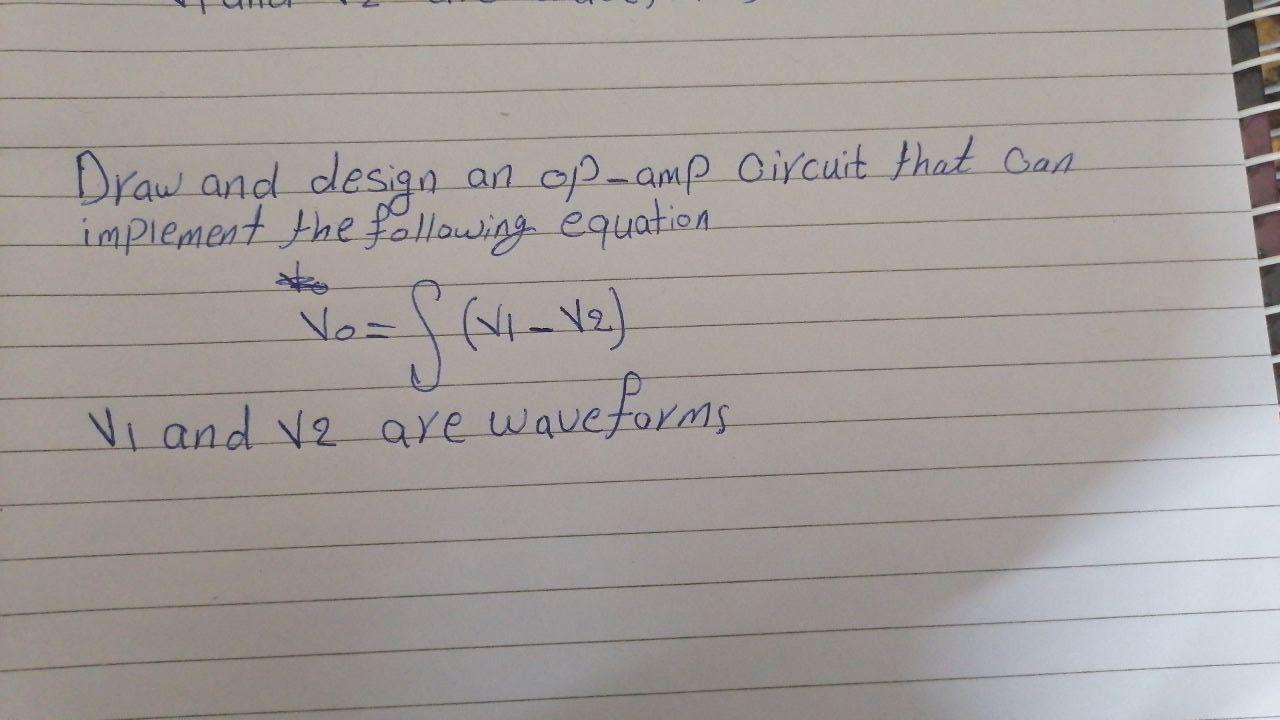 V1 and V2 are
Draw and design an op-amp circuit that can
implement the following equation
Vo = ∫ (V1 - V2)
V1 and V2 are waveforms